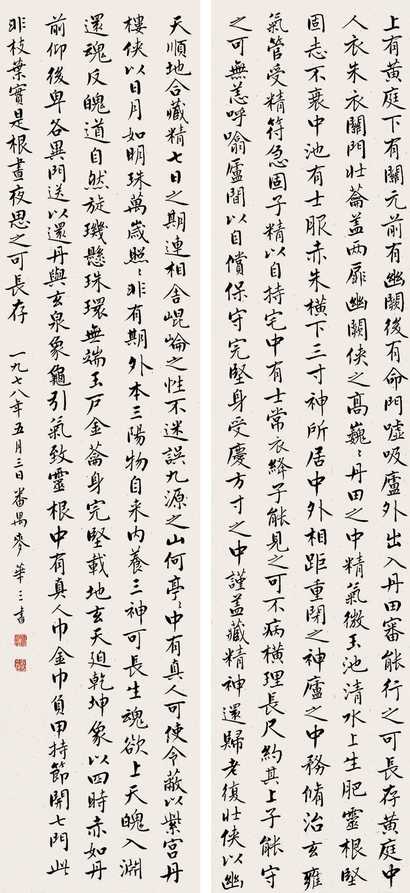 上有黃庭下有關元前有幽闕後有命門噓吸廬外出入丹田審能行之可長存黃庭中
人衣朱衣關門壯蘥蓋兩扉幽闕俠之高巍々丹田之中精氣微玉池清水上生肥靈根堅
固志不衰中池有士服赤朱橫下三寸神所居中外相距重閉之神廬之中務脩治玄雍
氣管受精符急固子精以自持宅中有士常衣絳子能見之可不病橫理長尺約其上子能守
之可無恙呼噏廬間以自償保守完堅身受慶方寸之中謹蓋藏精神還歸老復壯俠以幽
天順地合藏精七日之期連相舍崐崘之性不迷誤九源之山何亭々中有真人可使令蔽以紫宮丹
樓俠以日月如明珠萬歲照々非有期外本三陽物自来内養三神可長生魂欲上天魄入淵
還魂反魄道自然旋璣懸珠環無端玉戶金蘥身完堅載地玄天迫乾坤象以四時赤如丹
前仰後卑各異門送以還丹與玄泉象龜引氣致靈根中有真人巾金巾負甲持節開七門此
非枝葉實是根晝夜思之可長存 一九七八年五月三日番禺麥華三書